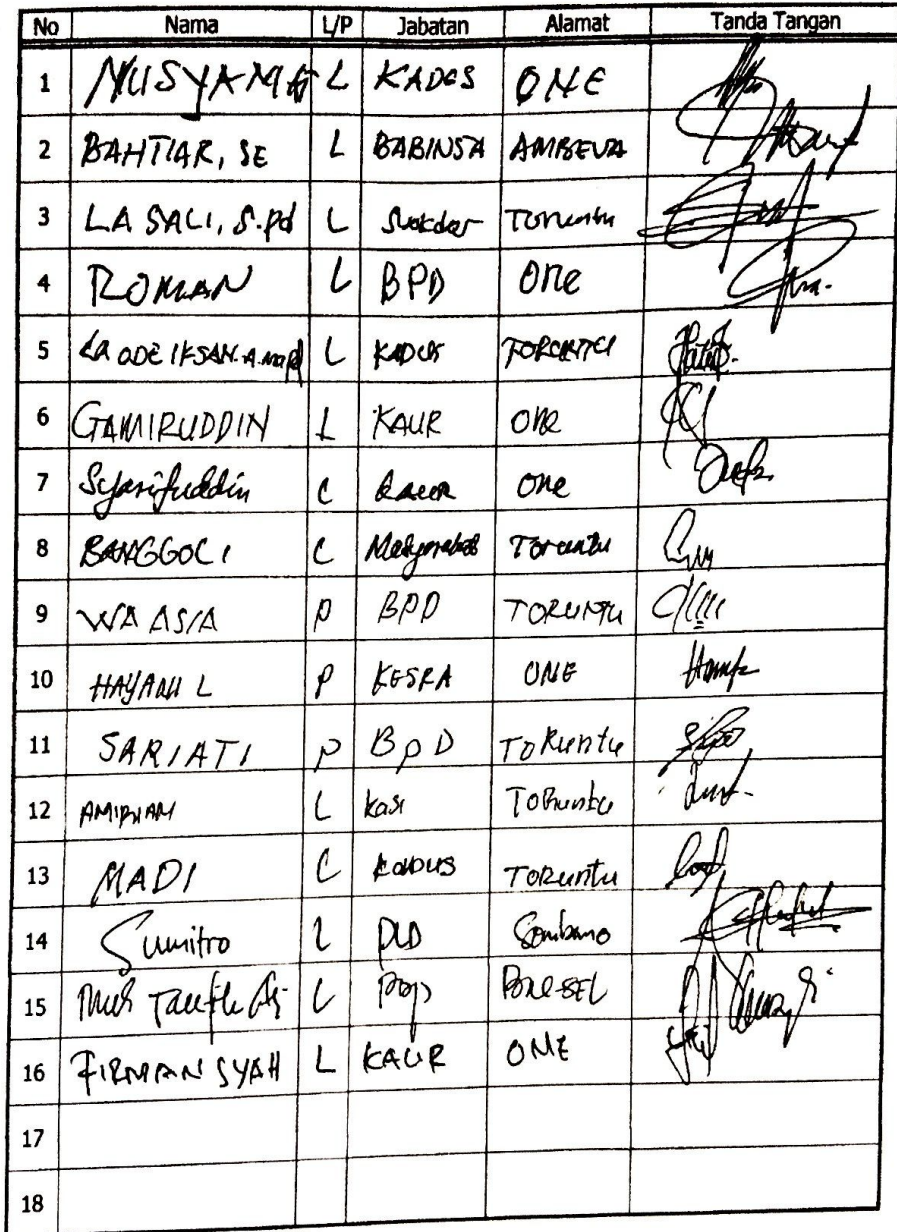 No Nama L/P Jabatan Alamat Tanda Tangan
1 L KADES ONE
2 BAHTIAR, SE L BABINSA
3 LA SALI, S.pd L Toruntu
4 ROMAN L BPD One
5 LA ODE IKSAN. A.mapd L KADUS TORUNTU
6 GAMIRUDDIN L KAUR One
7 Syarifuddin L Kaur One
8 BANGGOLI L Toruntu
9 WA ASIA P BPD TORUNTU
10 HAYANU L P KESRA ONE
11 SARIATI P BPD ToRuntu
12 L Kasi TORuntu
13 MADI L KADUS TORuntu
14 Sumitro L PLD Sombano
15 Muh Taufik L
16 FIRMANSYAH L KAUR ONE
17
18